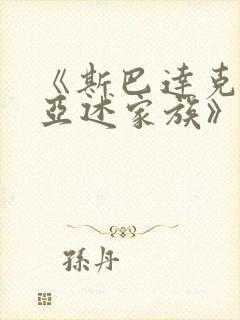 《斯巴达克
亚述家族》
孫丹